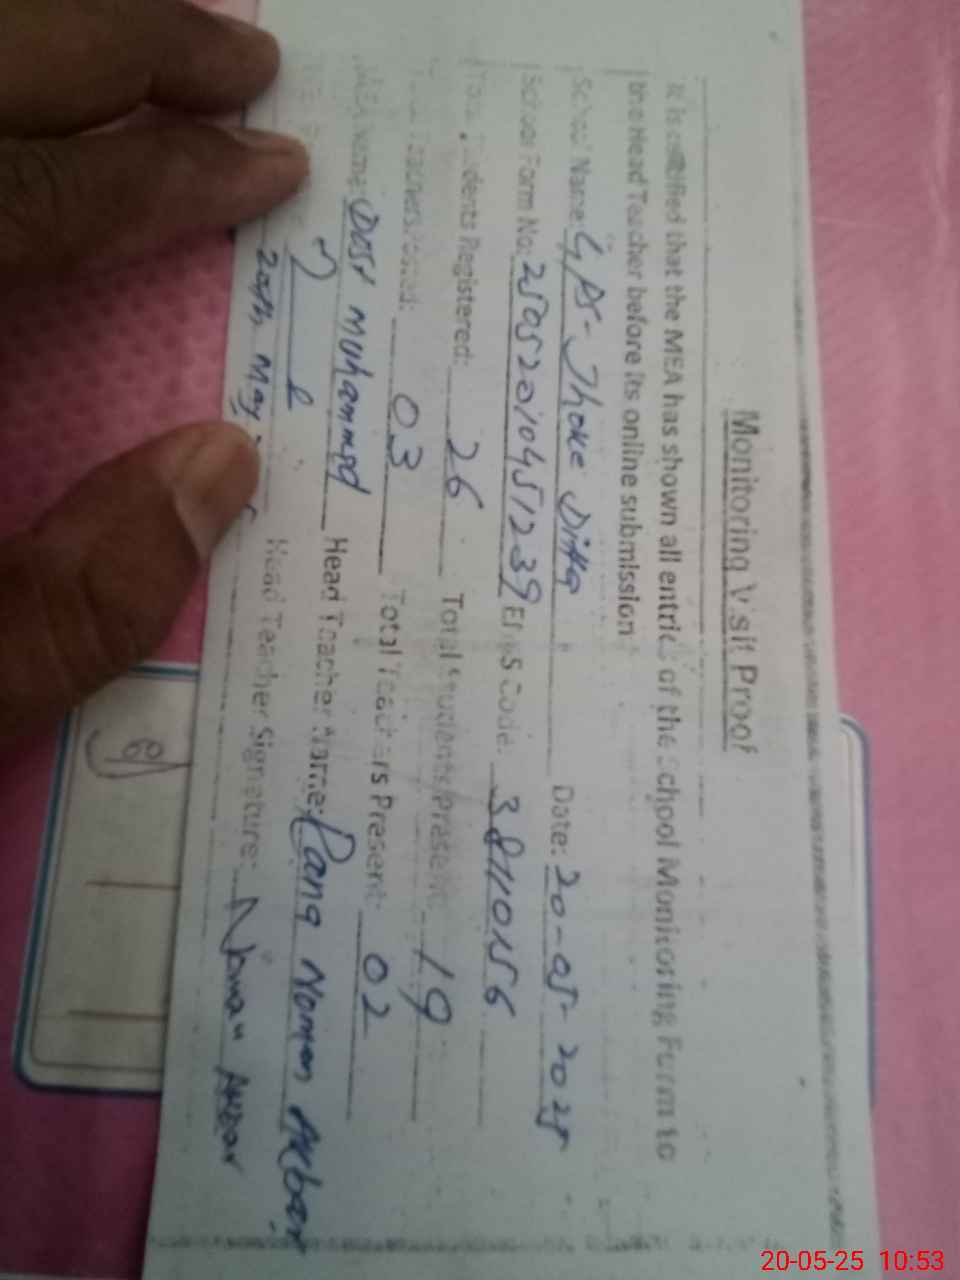 Monitoring Visit Proof
It is certified that the MEA has shown all entries of the School Monitoring Form to
the Head Teacher before its online submission
School Name: GPS-Jhoke Ditta Date: 20-05-2025
School Form No: 25052010451239 Emis Code:
Total Students Registered: 26 Total Students Present: 19
Total Teachers: 03 Total Teachers Present: 02
MEA Name: Dost Muhammad Head Teacher Name: Rana Noman Akbar
Head Teacher Signature: Noman Akbar
20th May
20-05-25 10:53